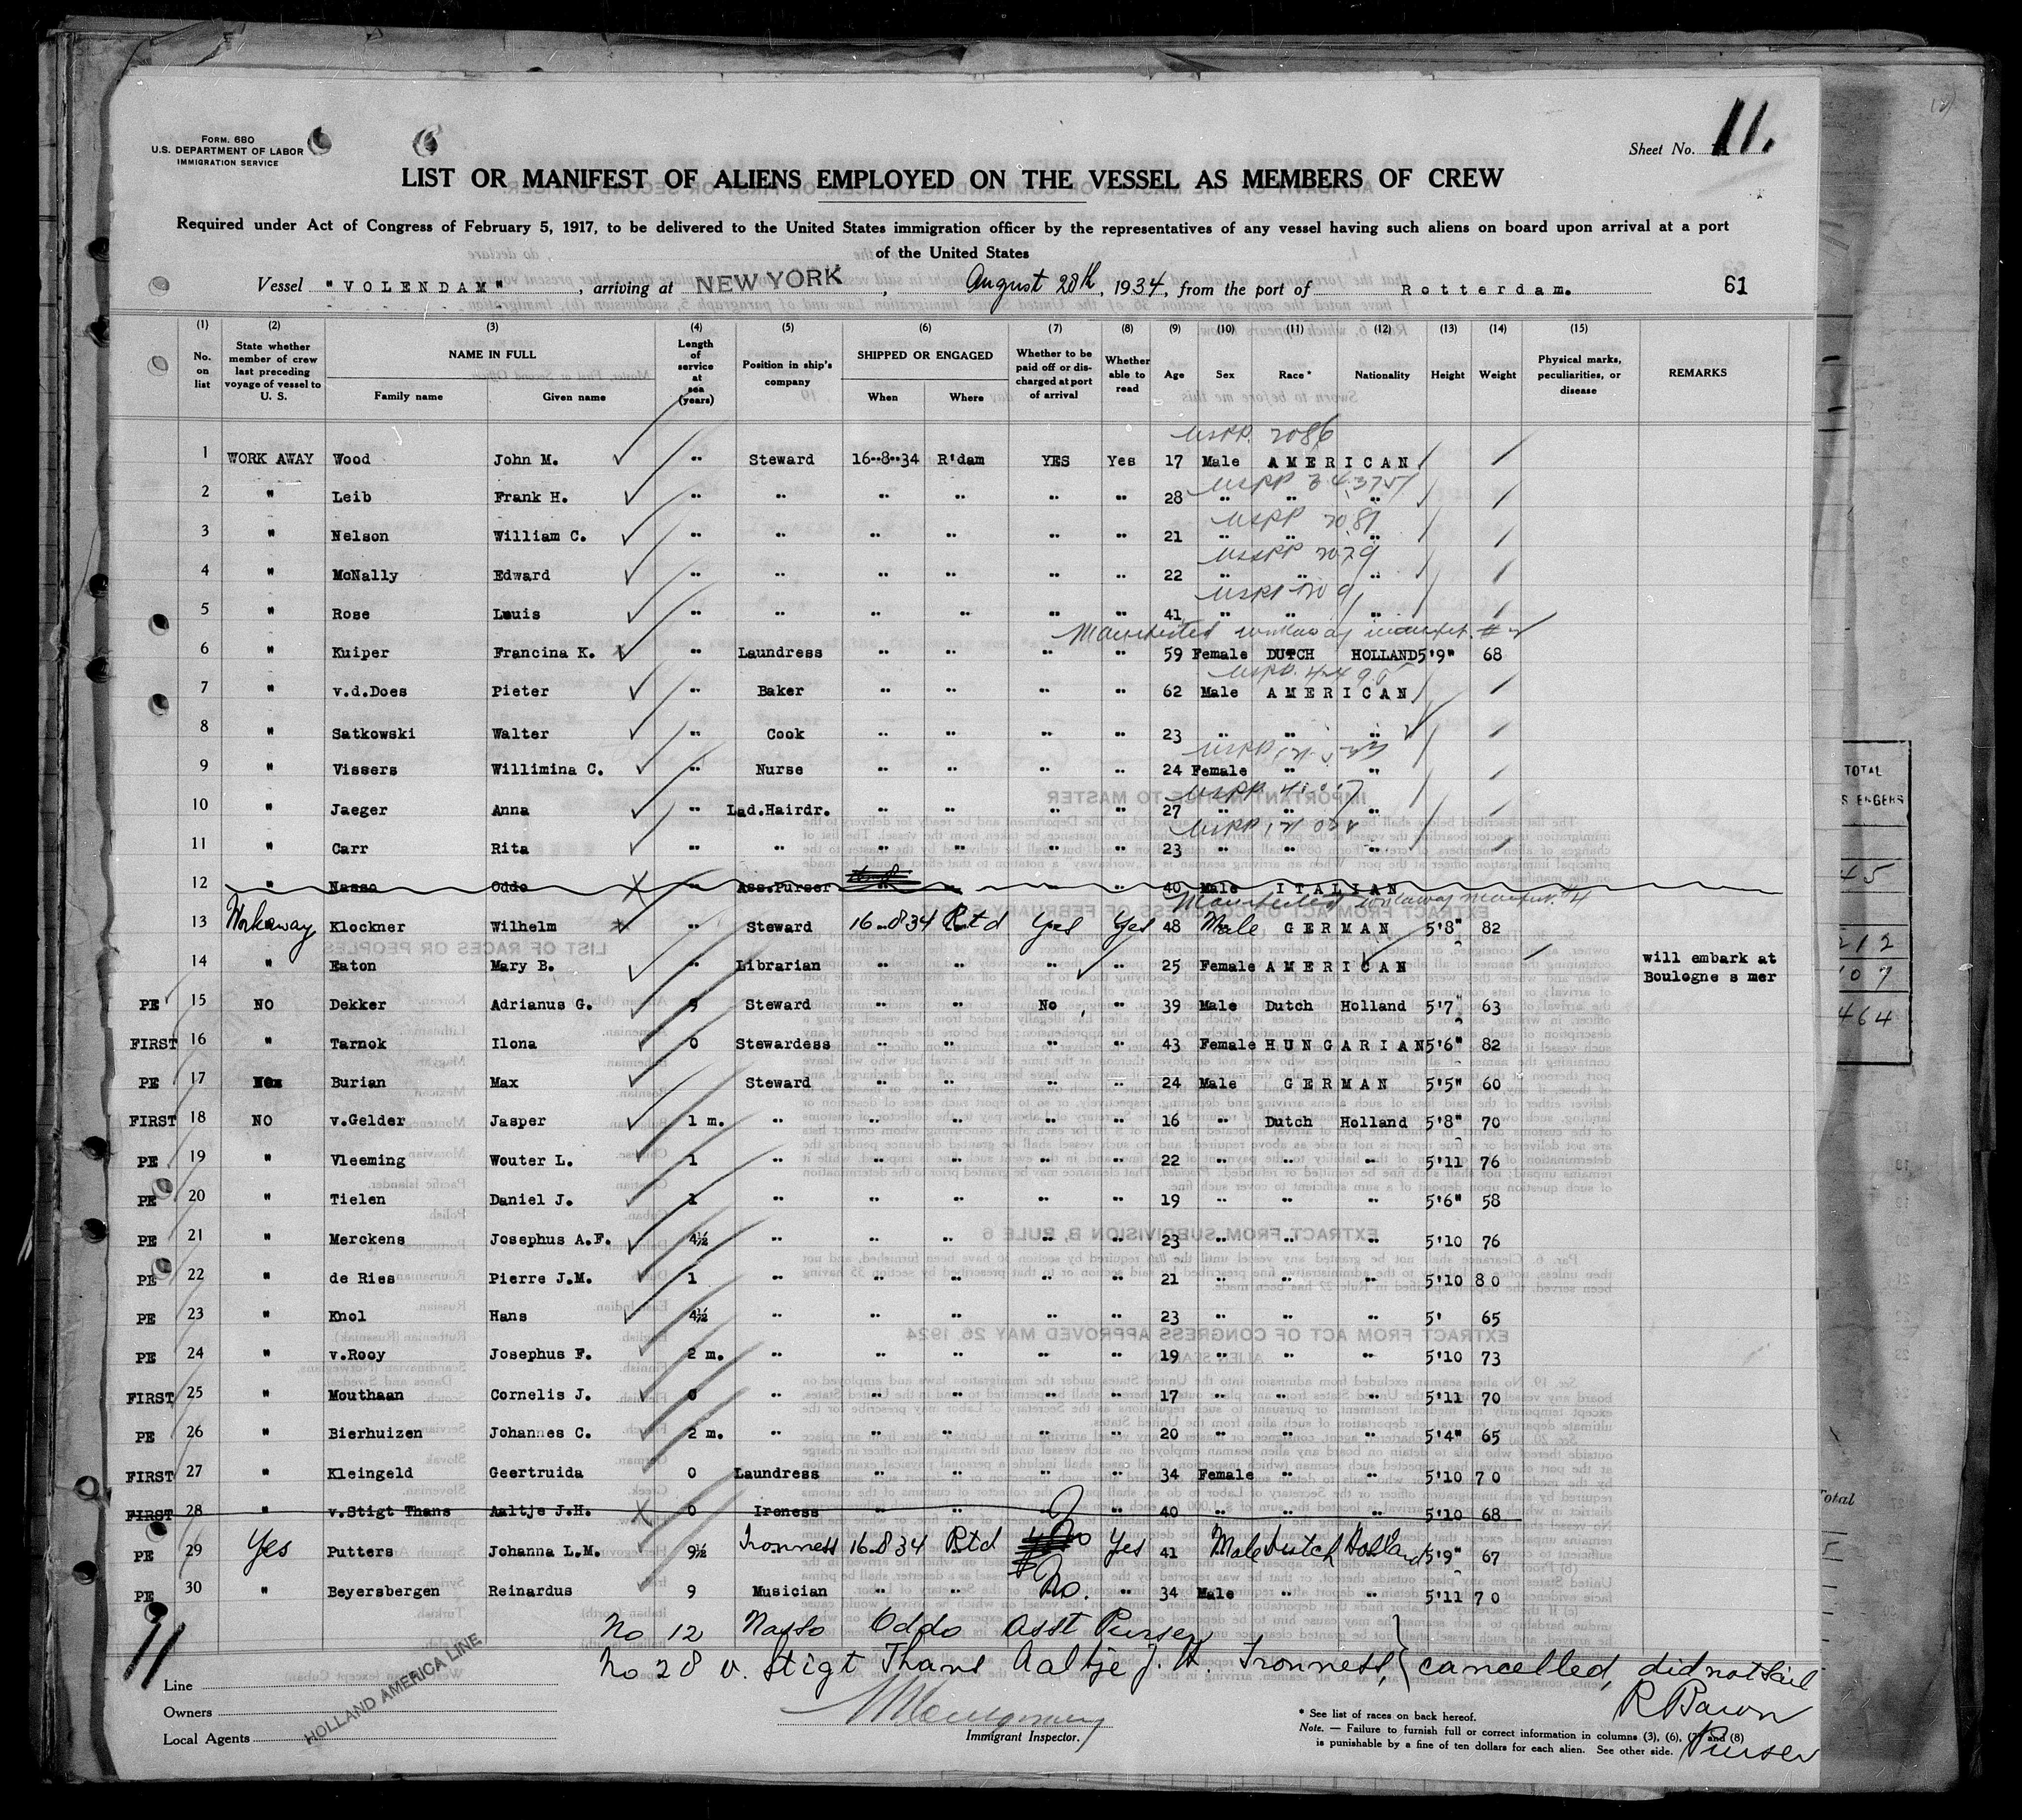 FORM. 680
U.S. DEPARTMENT OF LABOR
IMMIGRATION SERVICE
Sheet No. 11.
LIST OR MANIFEST OF ALIENS EMPLOYED ON THE VESSEL AS MEMBERS OF CREW
Required under Act of Congress of February 5, 1917, to be delivered to the United States immigration officer by the representatives of any vessel having such aliens on board upon arrival at a port
of the United States
Vessel "VOLENDAM", arriving at NEW YORK, August 28th, 1934, from the port of Rotterdam. 61
(1) (2) (3) (4) (5) (6) (7) (8) (9) (10) (11) (12) (13) (14) (15)
No. on list | State whether member of crew last preceding voyage of vessel to U. S. | NAME IN FULL Family name Given name | Length of service at sea (years) | Position in ship's company | SHIPPED OR ENGAGED When Where | Whether to be paid off or discharged at port of arrival | Whether able to read | Age | Sex | Race * | Nationality | Height | Weight | Physical marks, peculiarities, or disease | REMARKS
USPP. 2086
1 WORK AWAY Wood John M. " Steward 16-8-34 R'dam YES Yes 17 Male AMERICAN
2 " Leib Frank H. " " " " " " 28 " " "
3 " Nelson William C. " " " " " " 21 " " "
USPP 2079
4 " McNally Edward " " " " " " 22 " " "
5 " Rose Louis " " " " " " 41 " " "
Manifested workaway manifest #
6 " Kuiper Francina K. " Laundress " " " " 59 Female DUTCH HOLLAND 5'9" 68
7 " v.d.Does Pieter " Baker " " " " 62 Male AMERICAN
8 " Satkowski Walter " Cook " " " " 23 " " "
9 " Vissers Willimina C. " Nurse " " " " 24 Female " "
10 " Jaeger Anna " Lad.Hairdr. " " " " 27 " " "
11 " Carr Rita " " " " " " 23 " " "
12 " Nasso Oddo " Ass.Purser " " " " 40 Male ITALIAN
Manifested workaway manifest #4
13 Workaway Klockner Wilhelm " Steward 16-8 34 Rtd Yes Yes 48 Male GERMAN 5'8" 82
14 " Eaton Mary B. " Librarian " " " " 25 Female AMERICAN will embark at
Boulogne s mer
PE 15 NO Dekker Adrianus G. 9 Steward " " No " 39 Male Dutch Holland 5'7" 63
FIRST 16 " Tarnok Ilona 0 Stewardess " " " " 43 Female HUNGARIAN 5'6" 82
PE 17 Burian Max Steward " " " " 24 Male GERMAN 5'5" 60
FIRST 18 NO v.Gelder Jasper 1 m. " " " " " 16 " Dutch Holland 5'8" 70
PE 19 " Vleeming Wouter L. 1 " " " " " 22 " " " 5'11 76
PE 20 " Tielen Daniel J. 1 " " " " " 19 " " " 5'6" 58
PE 21 " Merckens Josephus A.F. 4½ " " " " " 23 " " " 5'10 76
PE 22 " de Ries Pierre J.M. 1 " " " " " 21 " " " 5'10 80
PE 23 " Knol Hans 4½ " " " " " 23 " " " 5' 65
PE 24 " v.Rooy Josephus F. 2 m. " " " " " 19 " " " 5'10 73
FIRST 25 " Mouthaan Cornelis J. 0 " " " " " 17 " " " 5'11 70
PE 26 " Bierhuizen Johannes C. 2 m. " " " " " 20 " " " 5'4" 65
FIRST 27 " Kleingeld Geertruida 0 Laundress " " " " 34 Female " " 5'10 70
FIRST 28 " v.Stigt Thans Aaltje J.H. 0 Ironess " " " " 40 " " " 5'10 68
PE 29 Yes Putters Johanna L.M. 9½ Ironness 16-8 34 Rtd No Yes 41 Male Dutch Holland 5'9" 67
PE 30 " Beyersbergen Reinardus 9 Musician " " No. " 34 Male " " 5'11 70
No 12 Nasso Oddo Asst Purser
No 28 v. Stigt Thans Aaltje J. H. Ironness, } cancelled, did not sail
Line
Owners
Local Agents
HOLLAND AMERICA LINE
Montgomery
Immigrant Inspector.
Purser
* See list of races on back hereof.
Note. — Failure to furnish full or correct information in columns (3), (6), (7) and (8)
is punishable by a fine of ten dollars for each alien. See other side.
TOTAL
45
212
107
464
Total